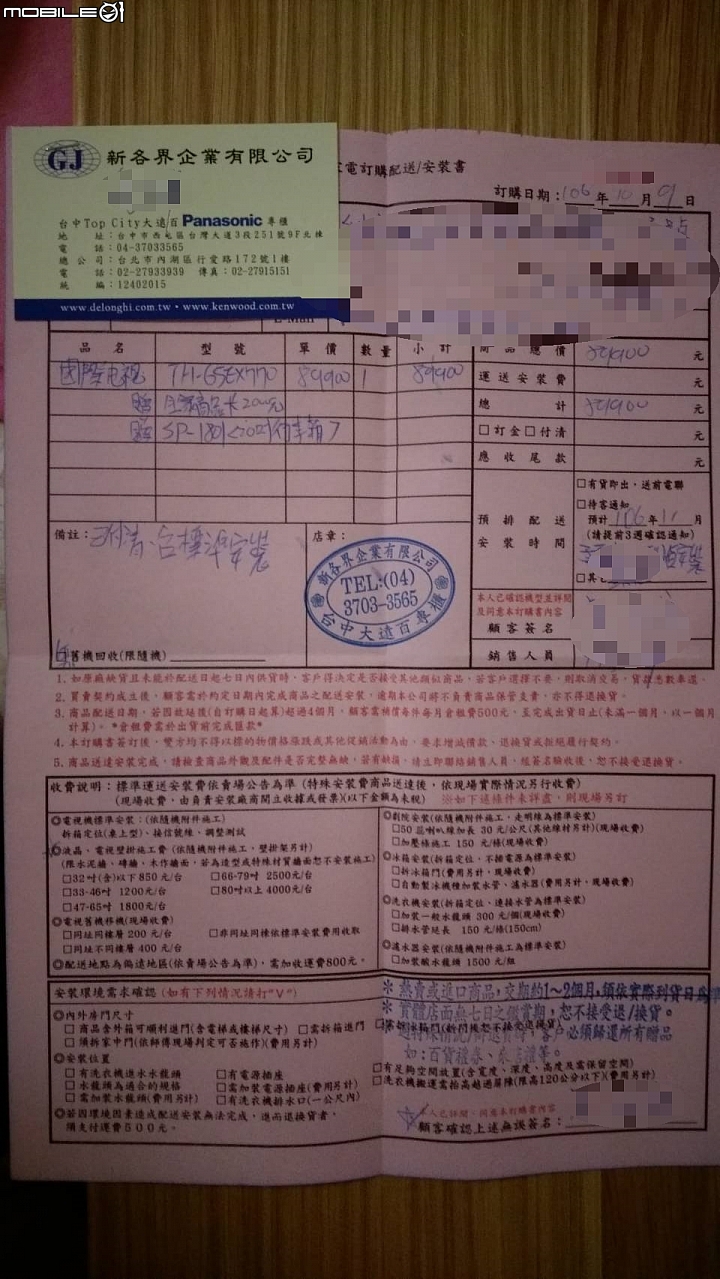 MOBILE01
GJ 新各界企業有限公司
台中Top City大遠百Panasonic專櫃
地 址：台中市西屯區台灣大道3段251號9F北棟
電 話：04-37033565
總 公 司：台北市內湖區行愛路172號1樓
電 話：02-27933939 傳真：02-27915151
統 編：12402015
www.delonghi.com.tw・www.kenwood.com.tw
電訂購配送/安裝書
訂購日期：106年10月9日
E-Mail
品名 型號 單價 數量 小計 商品總價 89900 元
國際电視 TH-65EX770 89900 1 89900
運送安裝費 元
贈 2000元
總計 89900 元
贈 SP-1801
□訂金□付清 元
應收尾款 元
預排配送安裝時間
□有貨即出，送前電聯
□待客通知
預計106年11月
(請提前3週確認通知)
備註：
店章：
新各界企業有限公司
TEL:(04)
3703-3565
台中大遠百專櫃
本人已確認機型並詳閱
及同意本訂購書內容
顧客簽名
銷售人員
舊機回收(限隨機)
1. 如原廠缺貨且未能於配送日起七日內供貨時，客戶得決定是否接受其他類似商品，若客戶選擇不要，則取消交易，貨款悉數奉還。
2. 買賣契約成立後，顧客需於約定日期內完成商品之配送安裝，逾期本公司將不負責商品保管支責，亦不得退換貨。
3. 商品配送日期，若因故延後(自訂購日起算)超過4個月，顧客需補償每件每月倉租費500元，至完成出貨日止(未滿一個月，以一個月
計算)。 *倉租費需於出貨前完成匯款*
4. 本訂購書簽訂後，雙方均不得以標的物價格漲跌或其他促銷活動為由，要求增減價款、退換貨或拒絕履行契約。
5. 商品送達安裝完成，請檢查商品外觀及配件是否完整無缺，若有缺損，請立即聯絡銷售人員，經簽名驗收後，恕不接受退換貨。
收費說明：標準運送安裝費依賣場公告為準 (特殊安裝費商品送達後，依現場實際情況另行收費)
(現場收費，由負責安裝廠商開立收據或發票)(以下金額為未稅) ※如下述條件未詳盡，則現場另訂
◎電視機標準安裝：(依隨機附件施工)
拆箱定位(桌上型)、接信號線、調整測試
◎液晶、電視壁掛施工費 (依隨機附件施工，壁掛架另計)
(限水泥牆、磚牆、木作牆面，若為造型或特殊材質牆面恕不安裝施工)
□32吋(含)以下850元/台 □66-79吋 2500元/台
□33-46吋 1200元/台 □80吋以上4000元/台
□47-65吋 1800元/台
◎電視舊機移機(現場收費)
□同址同樓層 200 元/台 □非同址同棟依標準安裝費用收取
□同址不同樓層 400 元/台
◎配送地點為偏遠地區(依賣場公告為準)，需加收運費800元。
◎劇院安裝(依隨機附件施工、走明線為標準安裝)
□50 蕊喇叭線加長 30 元/公尺(其他線材另計)(現場收費)
□加壓條施工 150 元/條(現場收費)
◎冰箱安裝(拆箱定位、不插電源為標準安裝)
□拆冰箱門(費用另計，現場收費)
□自動製冰機種加裝水管、濾水器(費用另計，現場收費)
◎洗衣機安裝(拆箱定位、連接水管為標準安裝)
□加裝一般水龍頭 300 元/個(現場收費)
□排水管延長 150 元/條(150cm)
◎濾水器安裝(依隨機附件施工為標準安裝)
□加裝酸水龍頭 1500 元/組
安裝環境需求確認 (如有下列情況請打"V")
◎內外房門尺寸
□商品含外箱可順利進門(含電梯或樓梯尺寸) □需拆箱進門
□需拆冰箱門(拆門後恕不接受退換貨)
□須拆家中門(依師傅現場判定可否施作)(費用另計)
＊熱賣或進口商品，交期約1～2個月，須依實際到貨日為準
＊實體店面無七日之鑑賞期，恕不接受退/換貨。
客戶必須歸還所有贈品
如：百貨禮券、來店禮等。
◎安裝位置
□有洗衣機進水水龍頭 □有電源插座
□有足夠空間放置(含寬度、深度、高度及需保留空間)
□水龍頭為適合的規格 □需加裝電源插座(費用另計)
□洗衣機搬運需抬高越過屏障(限高120公分以下)(費用另計)
□需加裝水龍頭(費用另計) □有洗衣機排水口(一公尺內)
◎若因環境因素造成配送安裝無法完成，進而退換貨者，
須支付運費500元。
本人已詳閱、同意本訂購書內容
顧客確認上述無誤簽名：